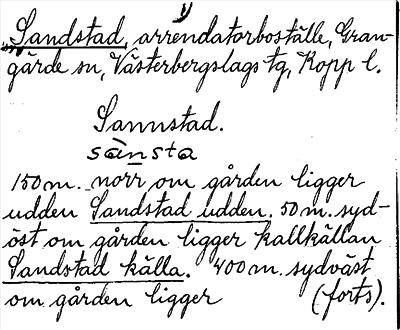 1)
„Sandstad, arrendatorboställe, Gran-
gärde sn, Västerbergslags tg, Kopp l.
Sannstad.
sànsta
150 m. norr om gården ligger
udden Sandstad udden. 50 m. syd-
öst om gården ligger kallkällan
Sandstad källa. 400 m. sydväst
om gården ligger (forts).